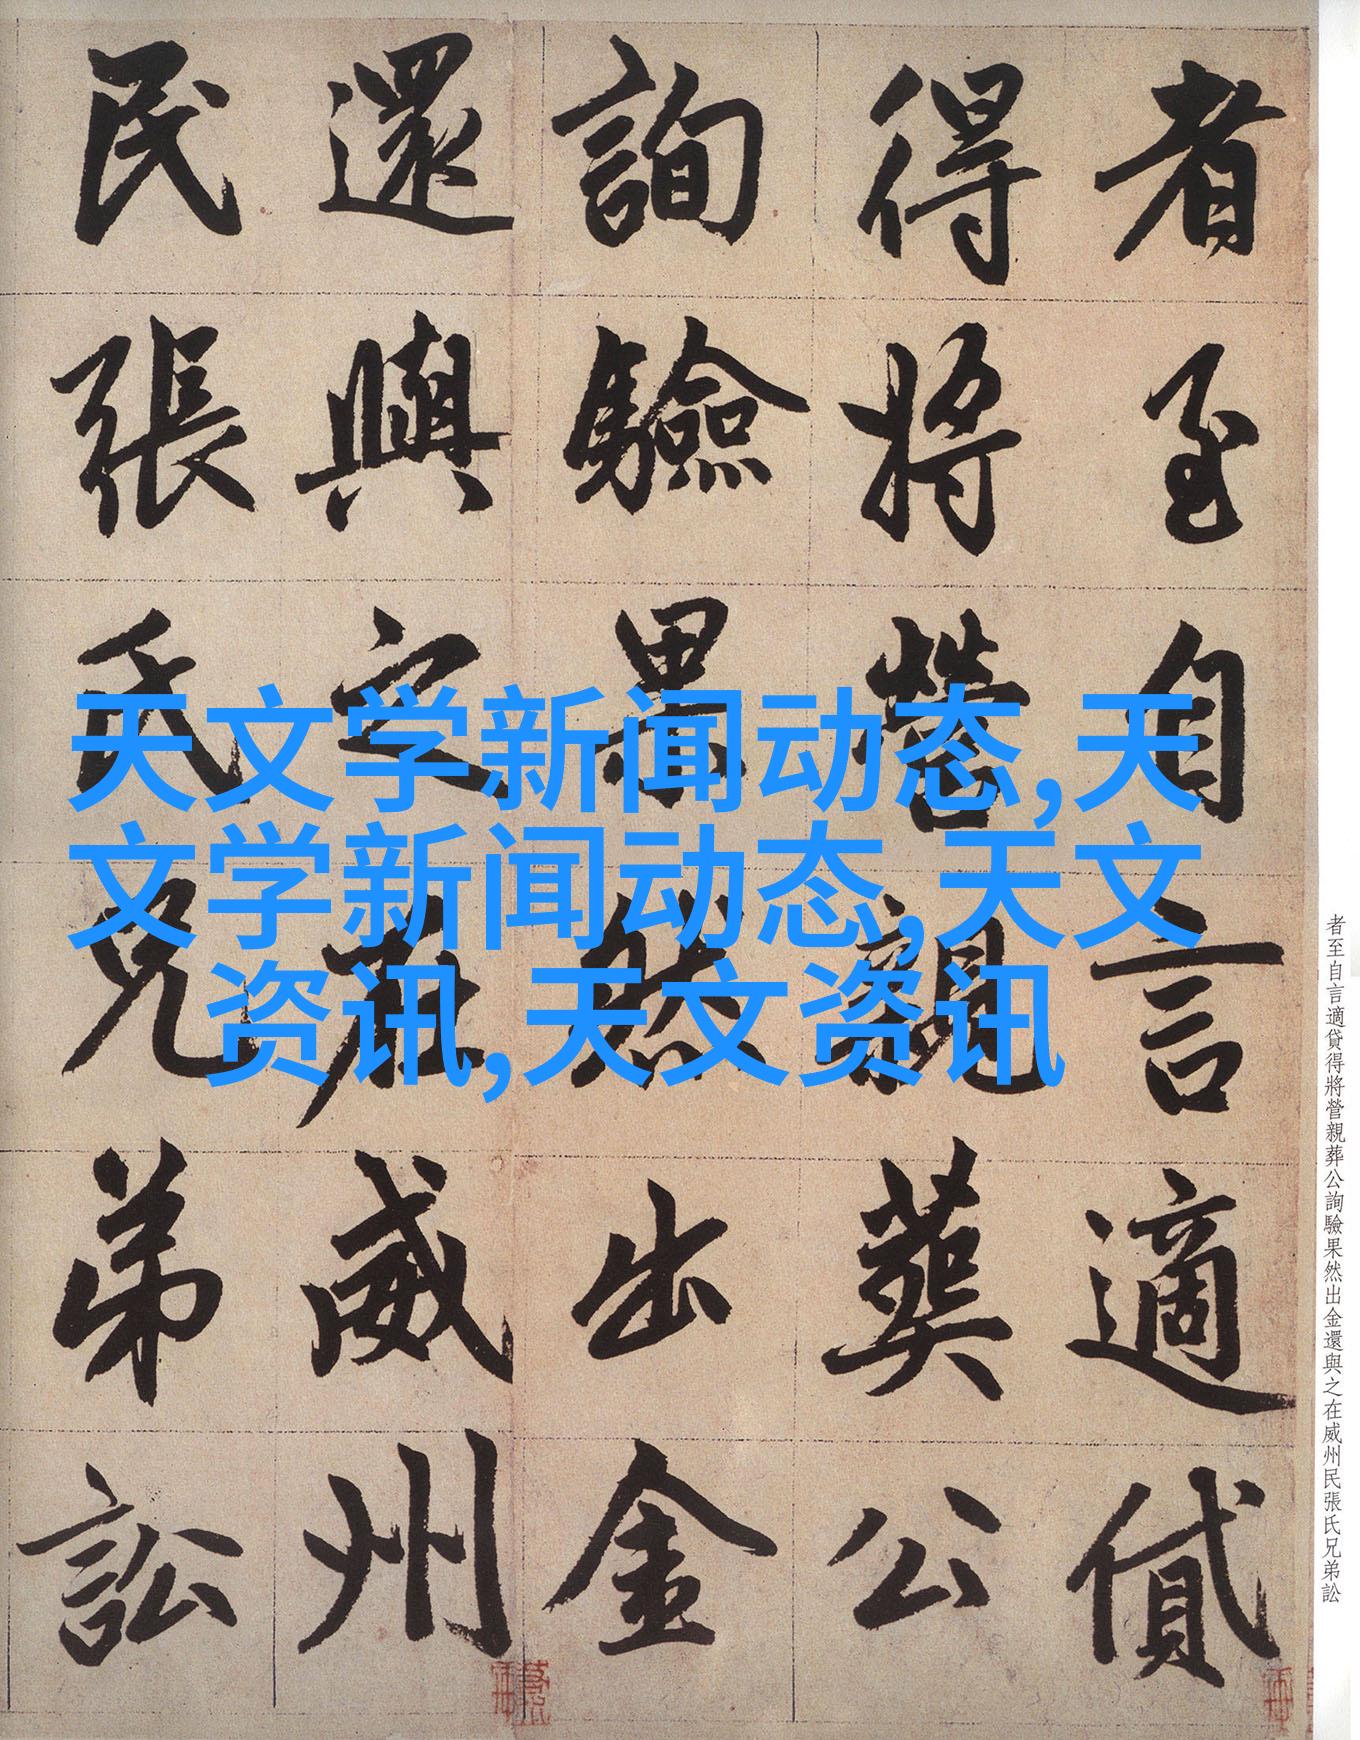 者至自言適貸
得將營親葬公
詢驗果然出金
還與之在威州
民張氏兄弟訟
天文学新闻动态,天
文学新闻动态,天文
资讯,天文资讯
者至自言適貸得將營親葬公詢驗果然出金還與之在威州民張氏兄弟訟